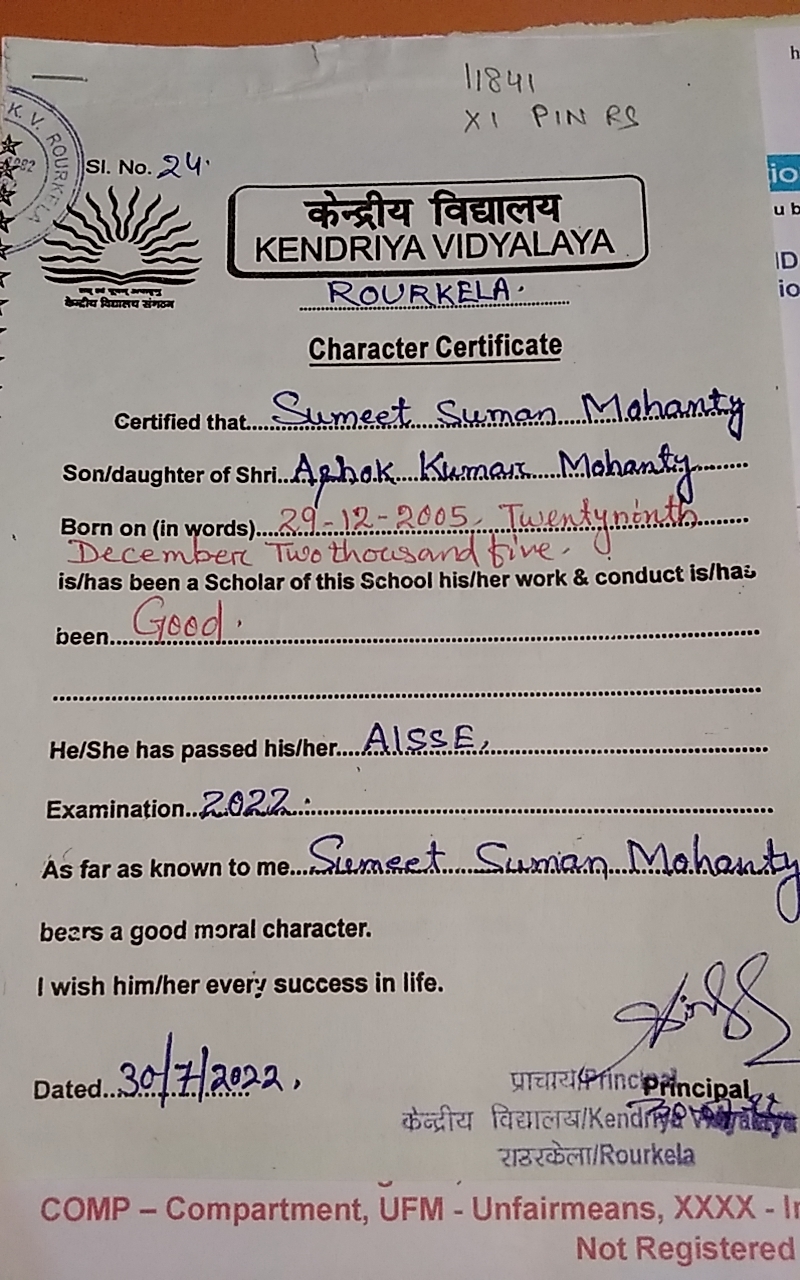 11841
XI PIN RS
K. V. ROURKELA
Sl. No. 24.
केन्द्रीय विद्यालय
KENDRIYA VIDYALAYA
केन्द्रीय विद्यालय संगठन
ROURKELA.
Character Certificate
Certified that....Sumeet Suman Mohanty
Son/daughter of Shri...Ashok Kumar Mohanty
Born on (in words)....29-12-2005, Twentyninth
December Two thousand five.
is/has been a Scholar of this School his/her work & conduct is/has
been....Good.
He/She has passed his/her....AISSE,
Examination..2022.
As far as known to me...Sumeet Suman Mohanty
bears a good moral character.
I wish him/her every success in life.
Dated..30/7/2022.
प्राचार्य/Principal
Principal
केन्द्रीय विद्यालय/Kendriya Vidyalaya
राउरकेला/Rourkela
COMP – Compartment, UFM - Unfairmeans, XXXX - I
Not Registered